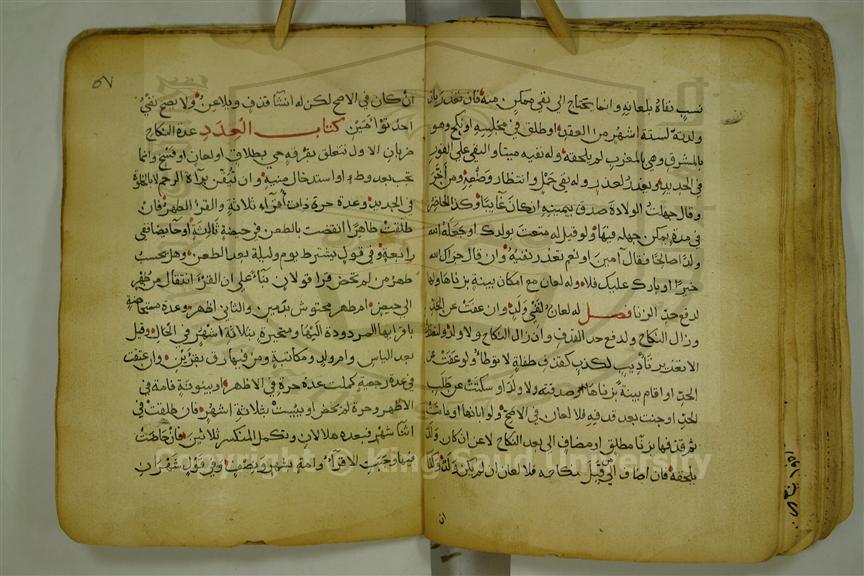 نسب نفاه بلعانه وانما يحتاج الى نفي ممكن منه فان تعذر بان
ولدته لستة اشهر من العقد او طلق في مجلسه او نكح وهو
بالمشرق وهي بالمغرب لم يلحقه وله نفيه ميتا والنفي على الفور
في الجديد ويعذر لعذر وله نفي حمل وانتظار وضعه ومن اخر
وقال جهلت الولادة صدق بيمينه ان كان غايبا وكذا الحاضر
في مدة يمكن جهله فيها ولو قيل له متعت بولدك او جعله الله
ولدا صالحا فقال آمين او نعم تعذر نفيه وان قال جزاك الله
خيرا او بارك عليك فلا وله لعان مع امكان بينة بزناها ولها
لدفع حد الزنا فصل له لعان لنفي ولد وان عفت عن الحد
وزال النكاح ولدفع حد القذف وان زال النكاح ولا ولد ولتعزيره
الا تعزير تاديب لكذب كقذف طفلة لا توطا ولو عفت عن
الحد او اقام بينة بزناها او صدقته ولا ولد او سكتت عن طلب
الحد او جنت بعد قذفه فلا لعان في الاصح ولو ابانها او ماتت
ثم قذفها بزنا مطلق او مضاف الى بعد النكاح لاعن ان كان ولد
يلحقه فان اضاف الى قبل نكاحه فلا لعان ان لم يكن ولد وكذا
ان
٥٧
ان كان في الاصح لكن له انشا قذف ويلاعن ولا يصح نفي
احد توامين كتاب العدد عدة النكاح
ضربان الاول تتعلق بفرقة حي بطلاق او لعان او فسخ وانما
تجب بعد وطء او استدخال منيه وان تيقن براءة الرحم لا بالخلوة
في الجديد وعدة حرة ذات اقراء ثلاثة والقرء الطهر فان
طلقت طاهرا انقضت بالطعن في حيضة ثالثة او حايضا ففي
رابعة وفي قول يشترط يوم وليلة بعد الطعن وهل يحسب
طهر من لم تحض قرءا قولان بناء على ان القرء انتقال من طهر
الى حيض ام طهر محتوش بدمين والثاني اظهر وعدة مستحاضة
باقرايها المردودة اليها ومتحيرة بثلاثة اشهر في الحال وقيل
بعد الياس وام ولد ومكاتبة ومن فيها رق بقرءين وان عتقت
في عدة رجعية كملت عدة حرة في الاظهر او بينونة فامة في
الاظهر وحرة لم تحض او يئست بثلاثة اشهر فان طلقت في
اثنا شهر فبعده هلالان وتكمل المنكسر ثلاثين فان حاضت
فيها وجبت الاقراء وامة بشهر ونصف وفي قول شهران
Copyright © King Saud University